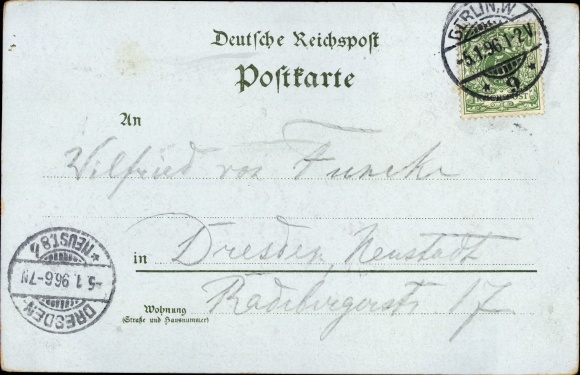 Deutsche Reichspost
Postkarte
BERLIN, W.
-5.1.96.1-2V.
* 9 *
An
Wilfried von Funcke
in Dresden Neustadt
Radebergerstr 17
Wohnung
(Straße und Hausnummer)
DRESDEN-
-5.1.96.6-7N
* NEUST. 8 *